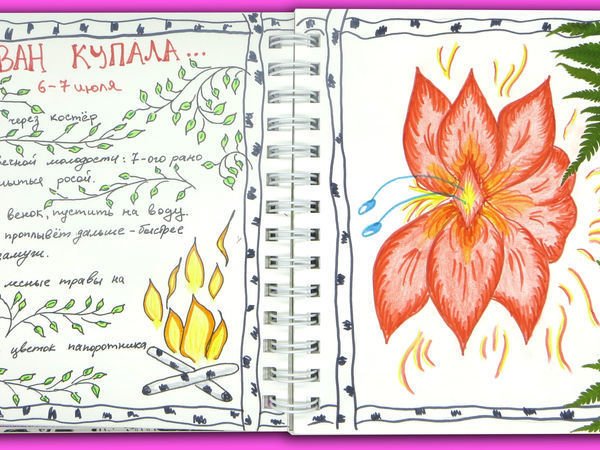 ВАН КУПАЛА...
6-7 июля
через костёр
вечной молодости: 7-ого рано
мыться росой.
венок, пустить на воду.
проплывёт дальше - быстрее
замуж.
лесные травы на
цветок папоротника